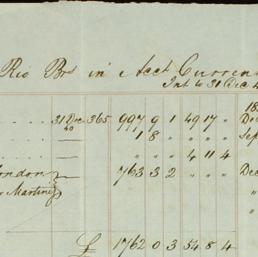 Rio Bros in Acct Current
Int to 31 Dec 4
18
31 Dec 40 365 997 9 1 49 17 " Dec
1 8 " " " " Sep
" " " 4 11 4
London 763 3 2 " " " Dec
Martinez "
£ 1762 0 3 54 8 4 "